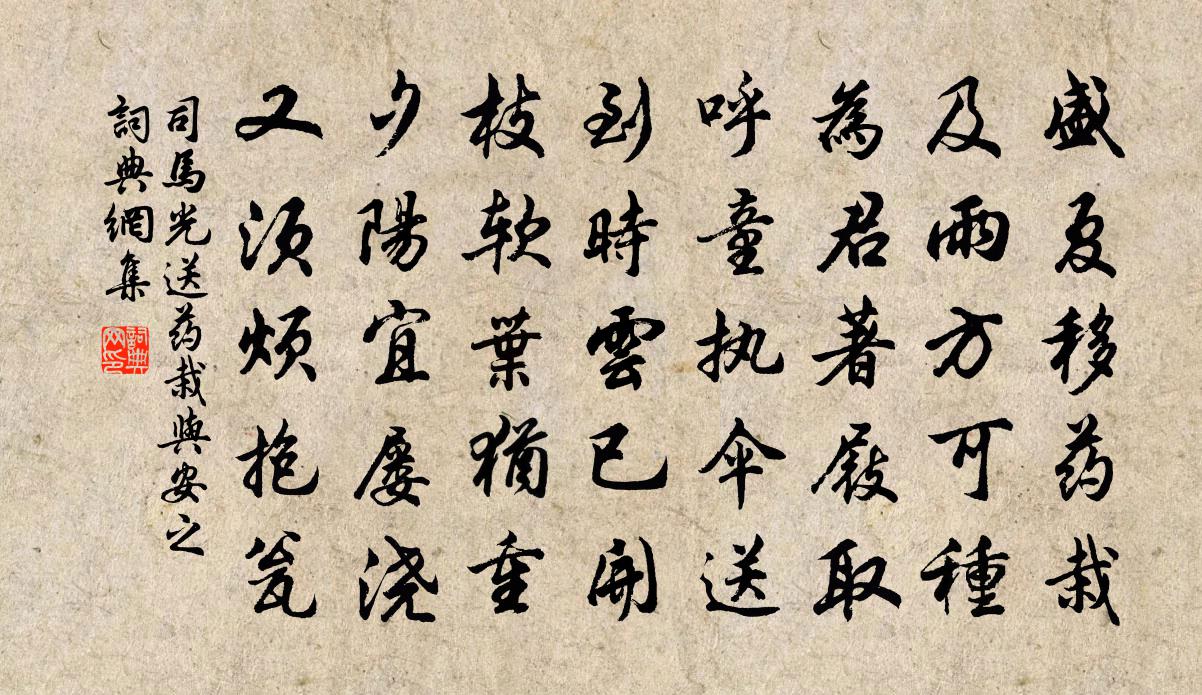 盛夏移药栽
及雨方可種
為君著屐取
呼童执伞送
到時雲已開
枝软葉猶重
夕陽宜屡浇
又須烦抱瓮
司馬光送药栽與安之
詞典網集
詞典网印